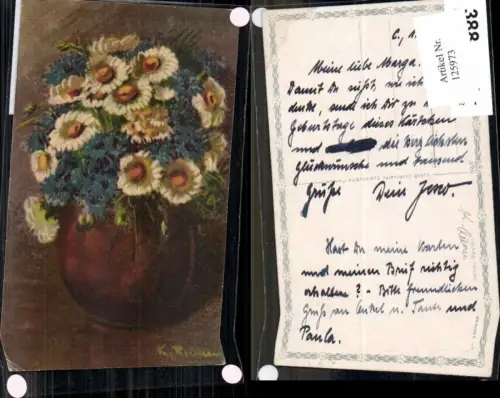 388
Artikel Nr.
125973
C, 1.
Meine liebe Marga.
Damit Du siehst, wie ich
denke, sende ich Dir zu
Geburtstage dieses Kärtchen
und die herzlichsten
Glückwünsche und tausend
Grüße Deine
Hast Du meine Karten
und meinen Brief richtig
erhalten? - Bitte freundlichen
Gruß an Onkel u. Tante und
Paula.
K.